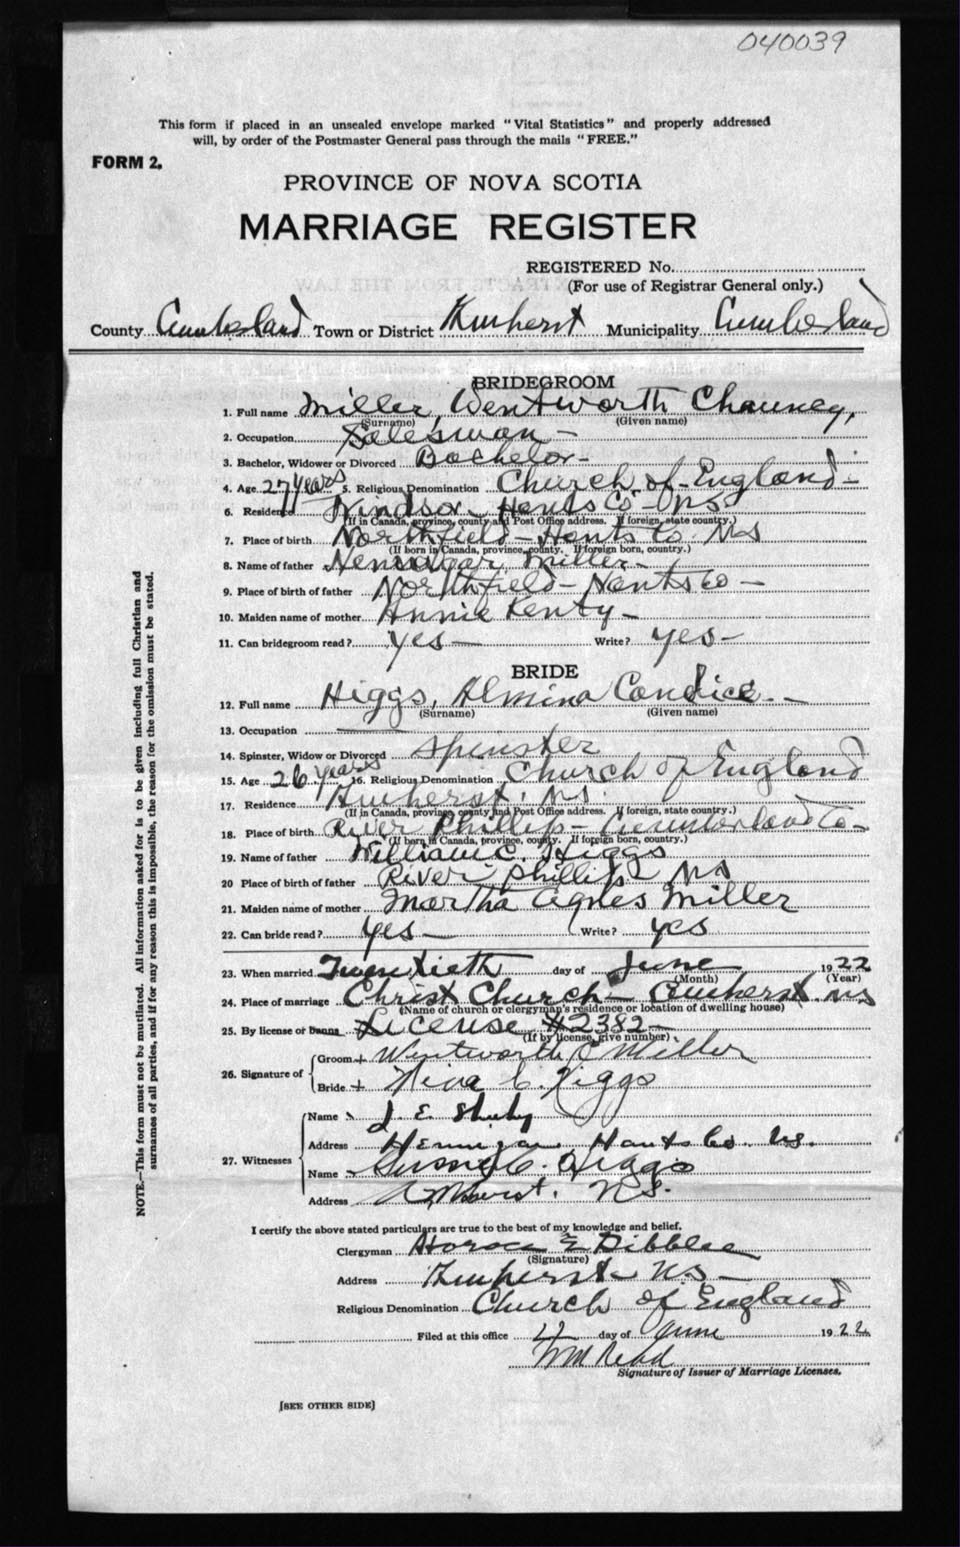 040039
This form if placed in an unsealed envelope marked "Vital Statistics" and properly addressed
will, by order of the Postmaster General pass through the mails "FREE."
FORM 2.
PROVINCE OF NOVA SCOTIA
MARRIAGE REGISTER
REGISTERED No.
(For use of Registrar General only.)
County Cumberland Town or District Amherst Municipality Cumberland
BRIDEGROOM
1. Full name Miller, Wentworth Chauncey,
(Surname) (Given name)
2. Occupation Salesman -
3. Bachelor, Widower or Divorced Bachelor -
4. Age 27 years 5. Religious Denomination Church of England -
6. Residence Windsor Hants Co - NS
(If in Canada, province, county and Post Office address. If foreign, state country.)
7. Place of birth Northfield - Hants Co. NS
(If born in Canada, province, county. If foreign born, country.)
8. Name of father Miller -
9. Place of birth of father Northfield - Hants Co -
10. Maiden name of mother Annie Kenty -
11. Can bridegroom read? Yes - Write? yes -
BRIDE
12. Full name Higgs, Almina Candice -
(Surname) (Given name)
13. Occupation
14. Spinster, Widow or Divorced Spinster
15. Age 26 years 16. Religious Denomination Church of England
17. Residence Amherst. NS.
(If in Canada, province, county and Post Office address. If foreign, state country.)
18. Place of birth River Phillip - Cumberland Co -
(If born in Canada, province, county. If foreign born, country.)
19. Name of father William C. Higgs
20 Place of birth of father River Phillip NS
21. Maiden name of mother Martha Agnes Miller
22. Can bride read? Yes - Write? yes
23. When married Twentieth day of June 1922
(Month) (Year)
24. Place of marriage Christ Church - Amherst NS
(Name of church or clergyman's residence or location of dwelling house)
25. By license or banns License #2382 -
(If by license, give number)
26. Signature of
Groom + Wentworth C Miller
Bride + Nina C. Higgs
27. Witnesses
Name J. E.
Address Hants Co. NS.
Name C. Higgs
Address Amherst. NS.
I certify the above stated particulars are true to the best of my knowledge and belief.
Clergyman Horace E Dibblee
(Signature)
Address Amherst NS -
Religious Denomination Church of England
Filed at this office day of June 1922
Wm Read
Signature of Issuer of Marriage Licenses.
[SEE OTHER SIDE]
NOTE.—This form must not be mutilated. All information asked for is to be given including full Christian and
surnames of all parties, and if for any reason this is impossible, the reason for the omission must be stated.